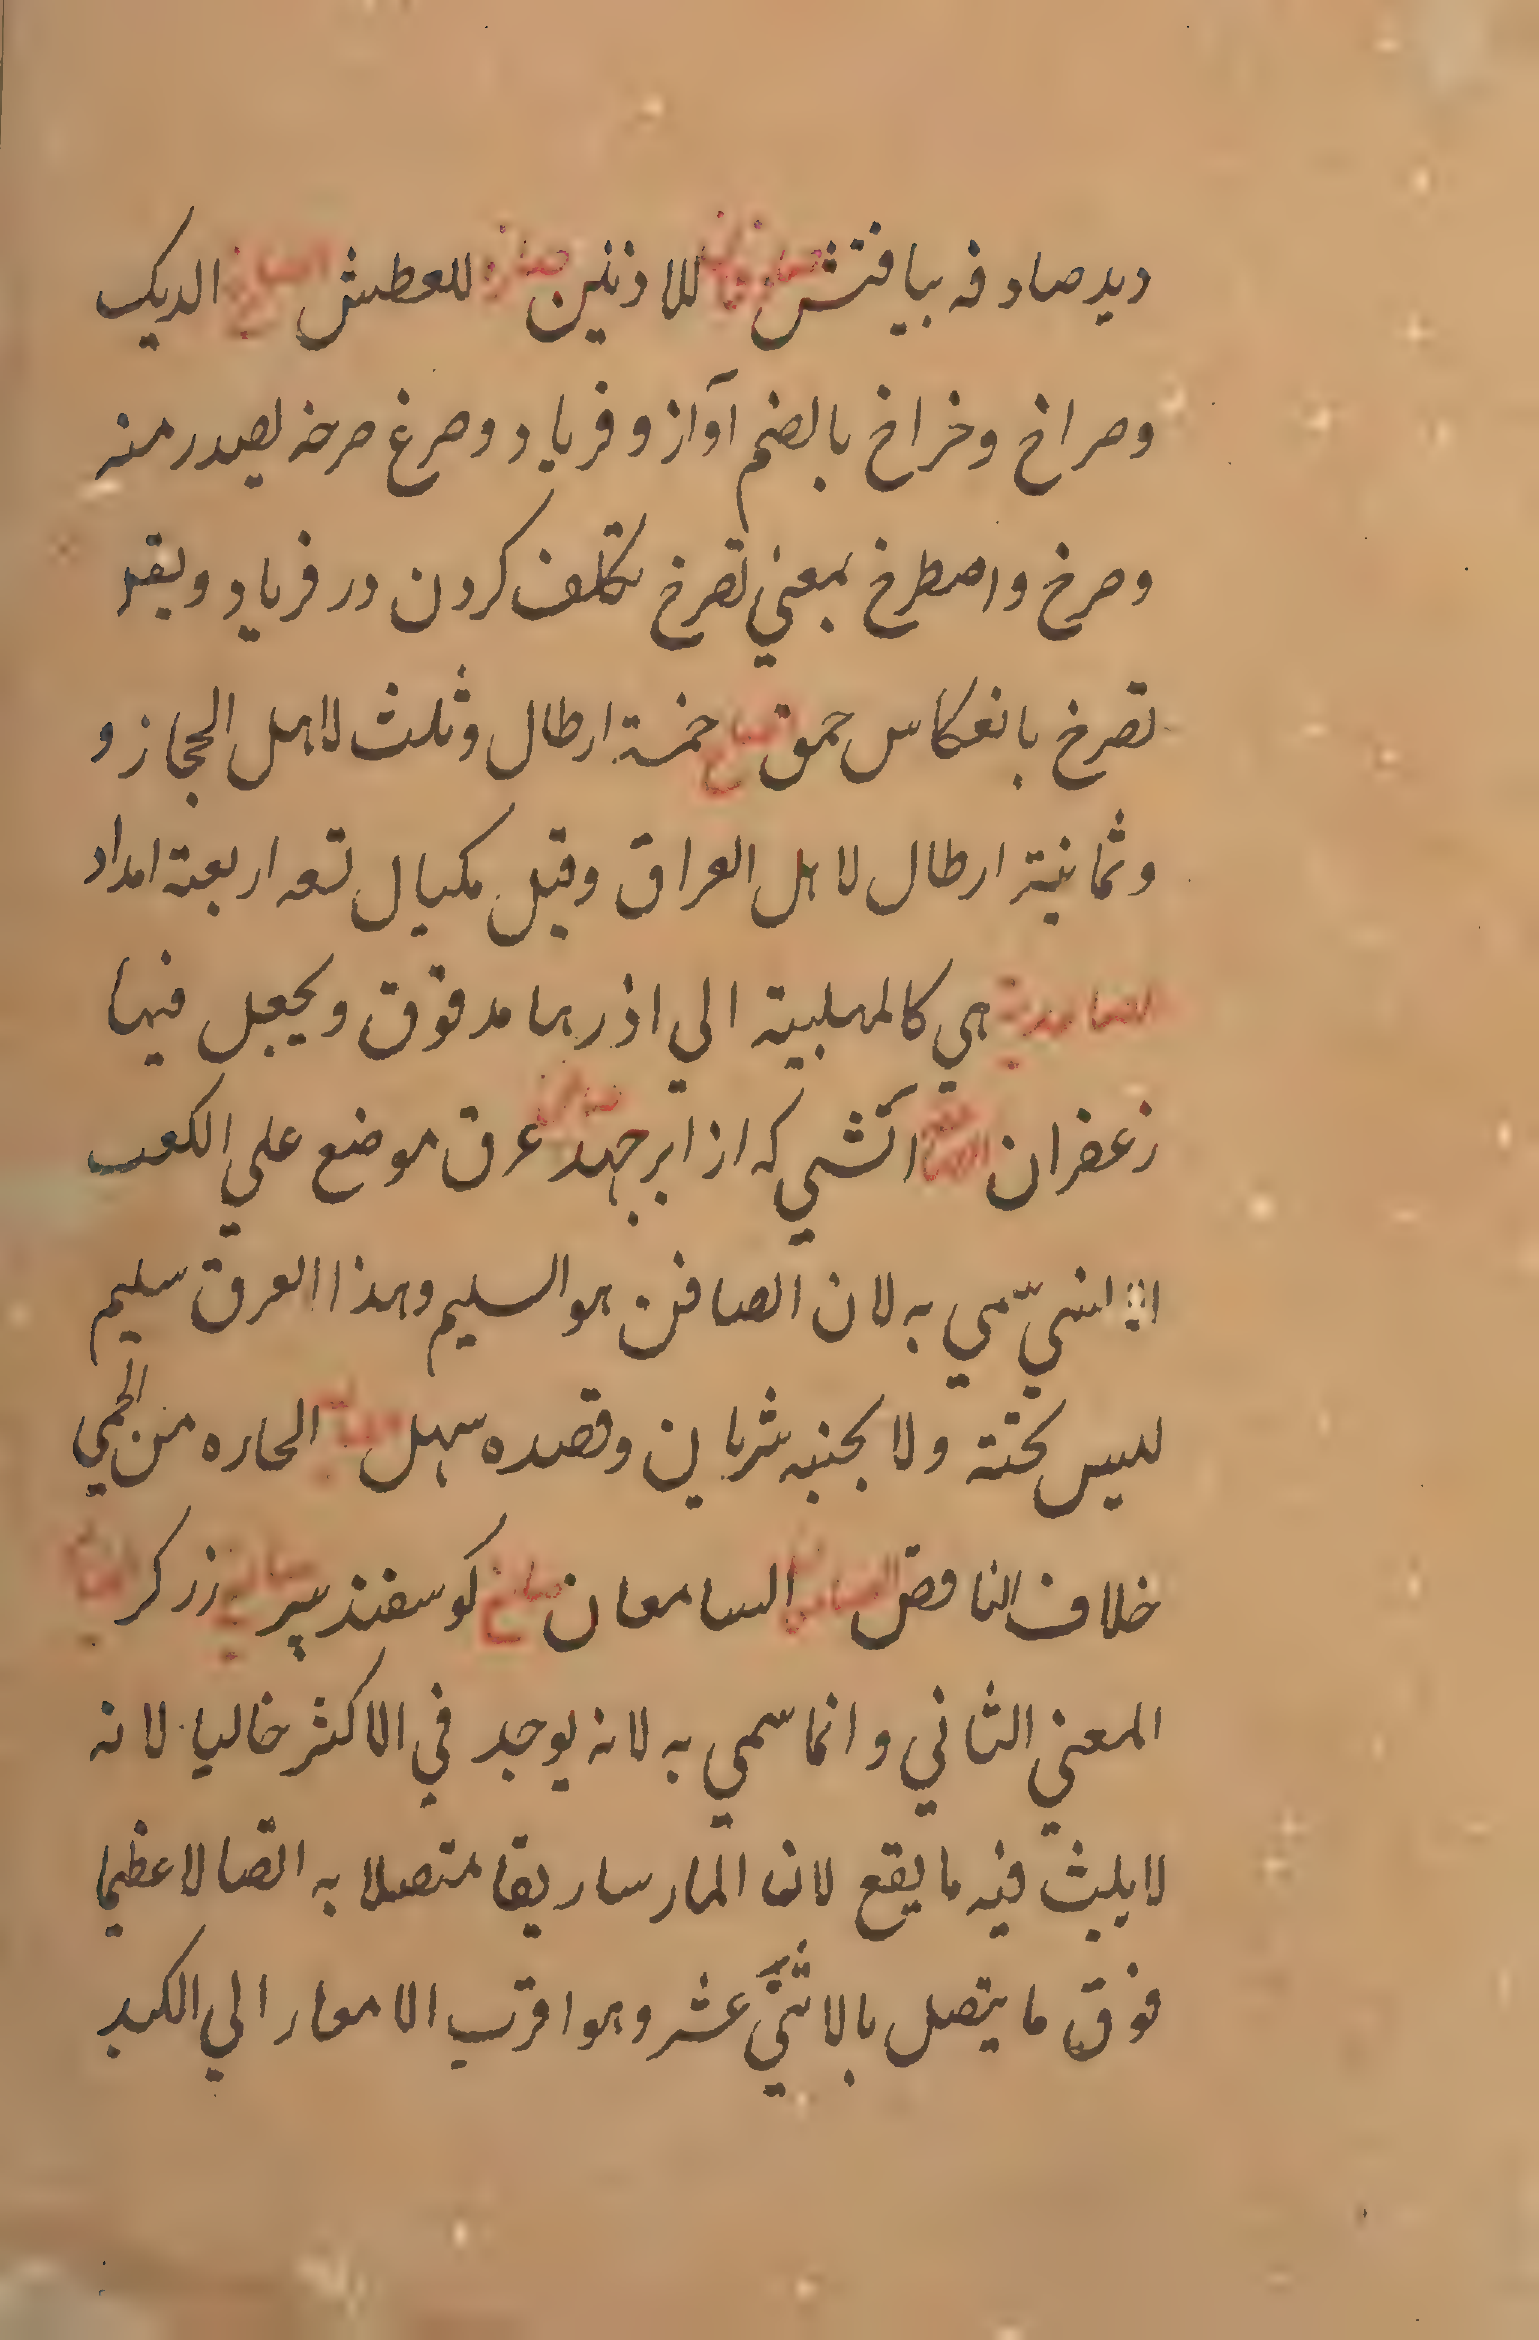 دید صادفه بیافتش للاذنین للعطش الصارخ الدیک
وصراخ وخراخ بالضم آواز و فریاد وصرغ صرخه یصدر منه
وصرخ واصطرخ بمعنی تصرخ تکلف کردن در فریاد ویقر
تصرخ بانعکاس حمق صاع خمسة ارطال وثلث لاهل الحجاز و
وثمانیة ارطال لاهل العراق وقیل مکیال تسعه اربعة امداد
الصامدیة هی کالمهلبیة الی اذرها مدقوق ویجعل فیها
زعفران آتشی که از ابر جهد صافن عرق موضع علی الکعب
انسی سمی به لان الصافن هو السلیم وهذا العرق سلیم
لیس تحته ولا بجنبه شریان وقصده سهل الحاره من الحمی
خلاف النافض السامعان صالغ کوسفند پیر زرکر
المعنی الثانی وانما سمی به لانه یوجد فی الاکثر خالیا لانه
لا یلبث فیه ما یقع لان الماساریقا متصلا به اتصالا عظیما
فوق ما یتصل بالاثنی عشر وهو اقرب الامعار الی الکبد